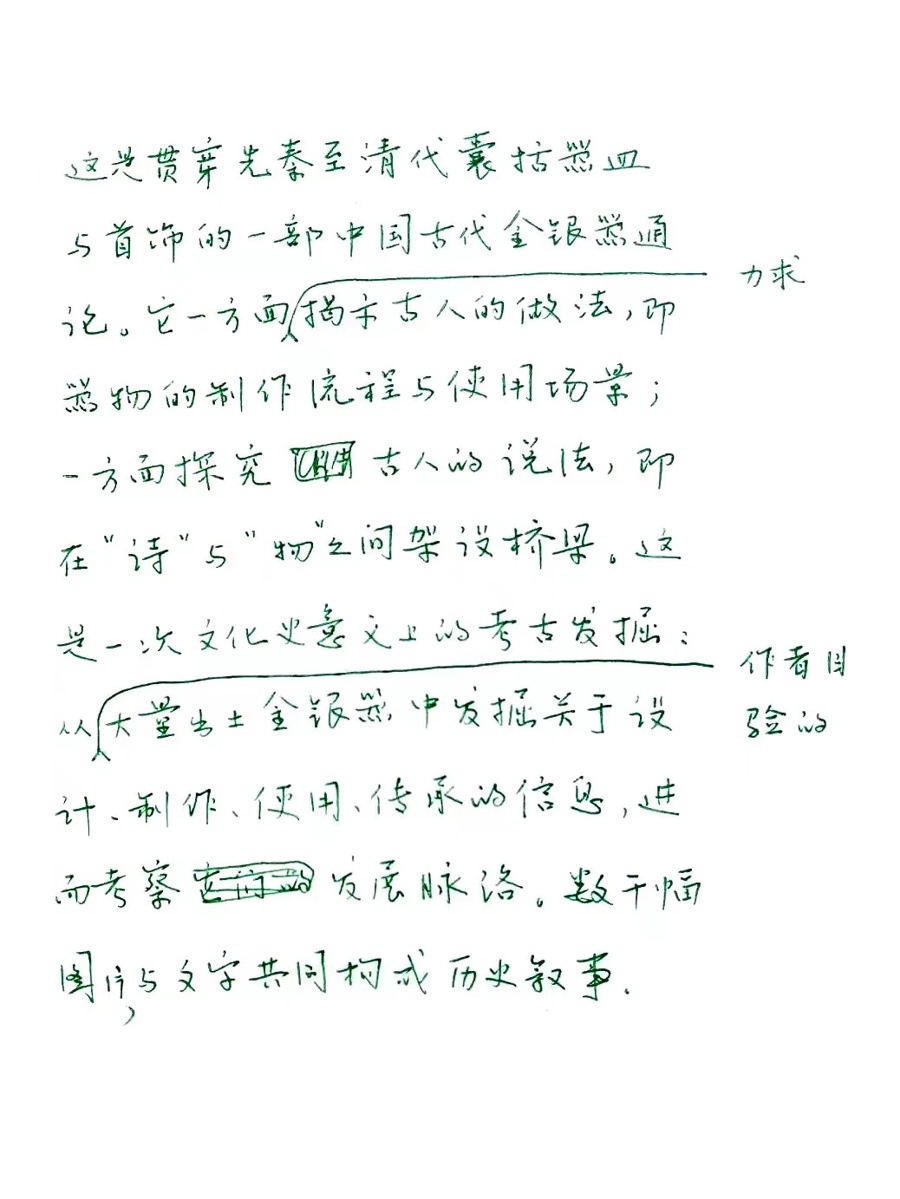 这是贯穿先秦至清代囊括器皿
与首饰的一部中国古代金银器通
论。它一方面揭示古人的做法,即
力求
器物的制作流程与使用场景;
一方面探究古人的说法,即
在“诗”与“物”之间架设桥梁。这
是一次文化史意义上的考古发掘:
从大量出土金银器中发掘关于设
作者目
验的
计、制作、使用、传承的信息,进
而考察它们的发展脉络。数千幅
图片,与文字共同构成历史叙事.